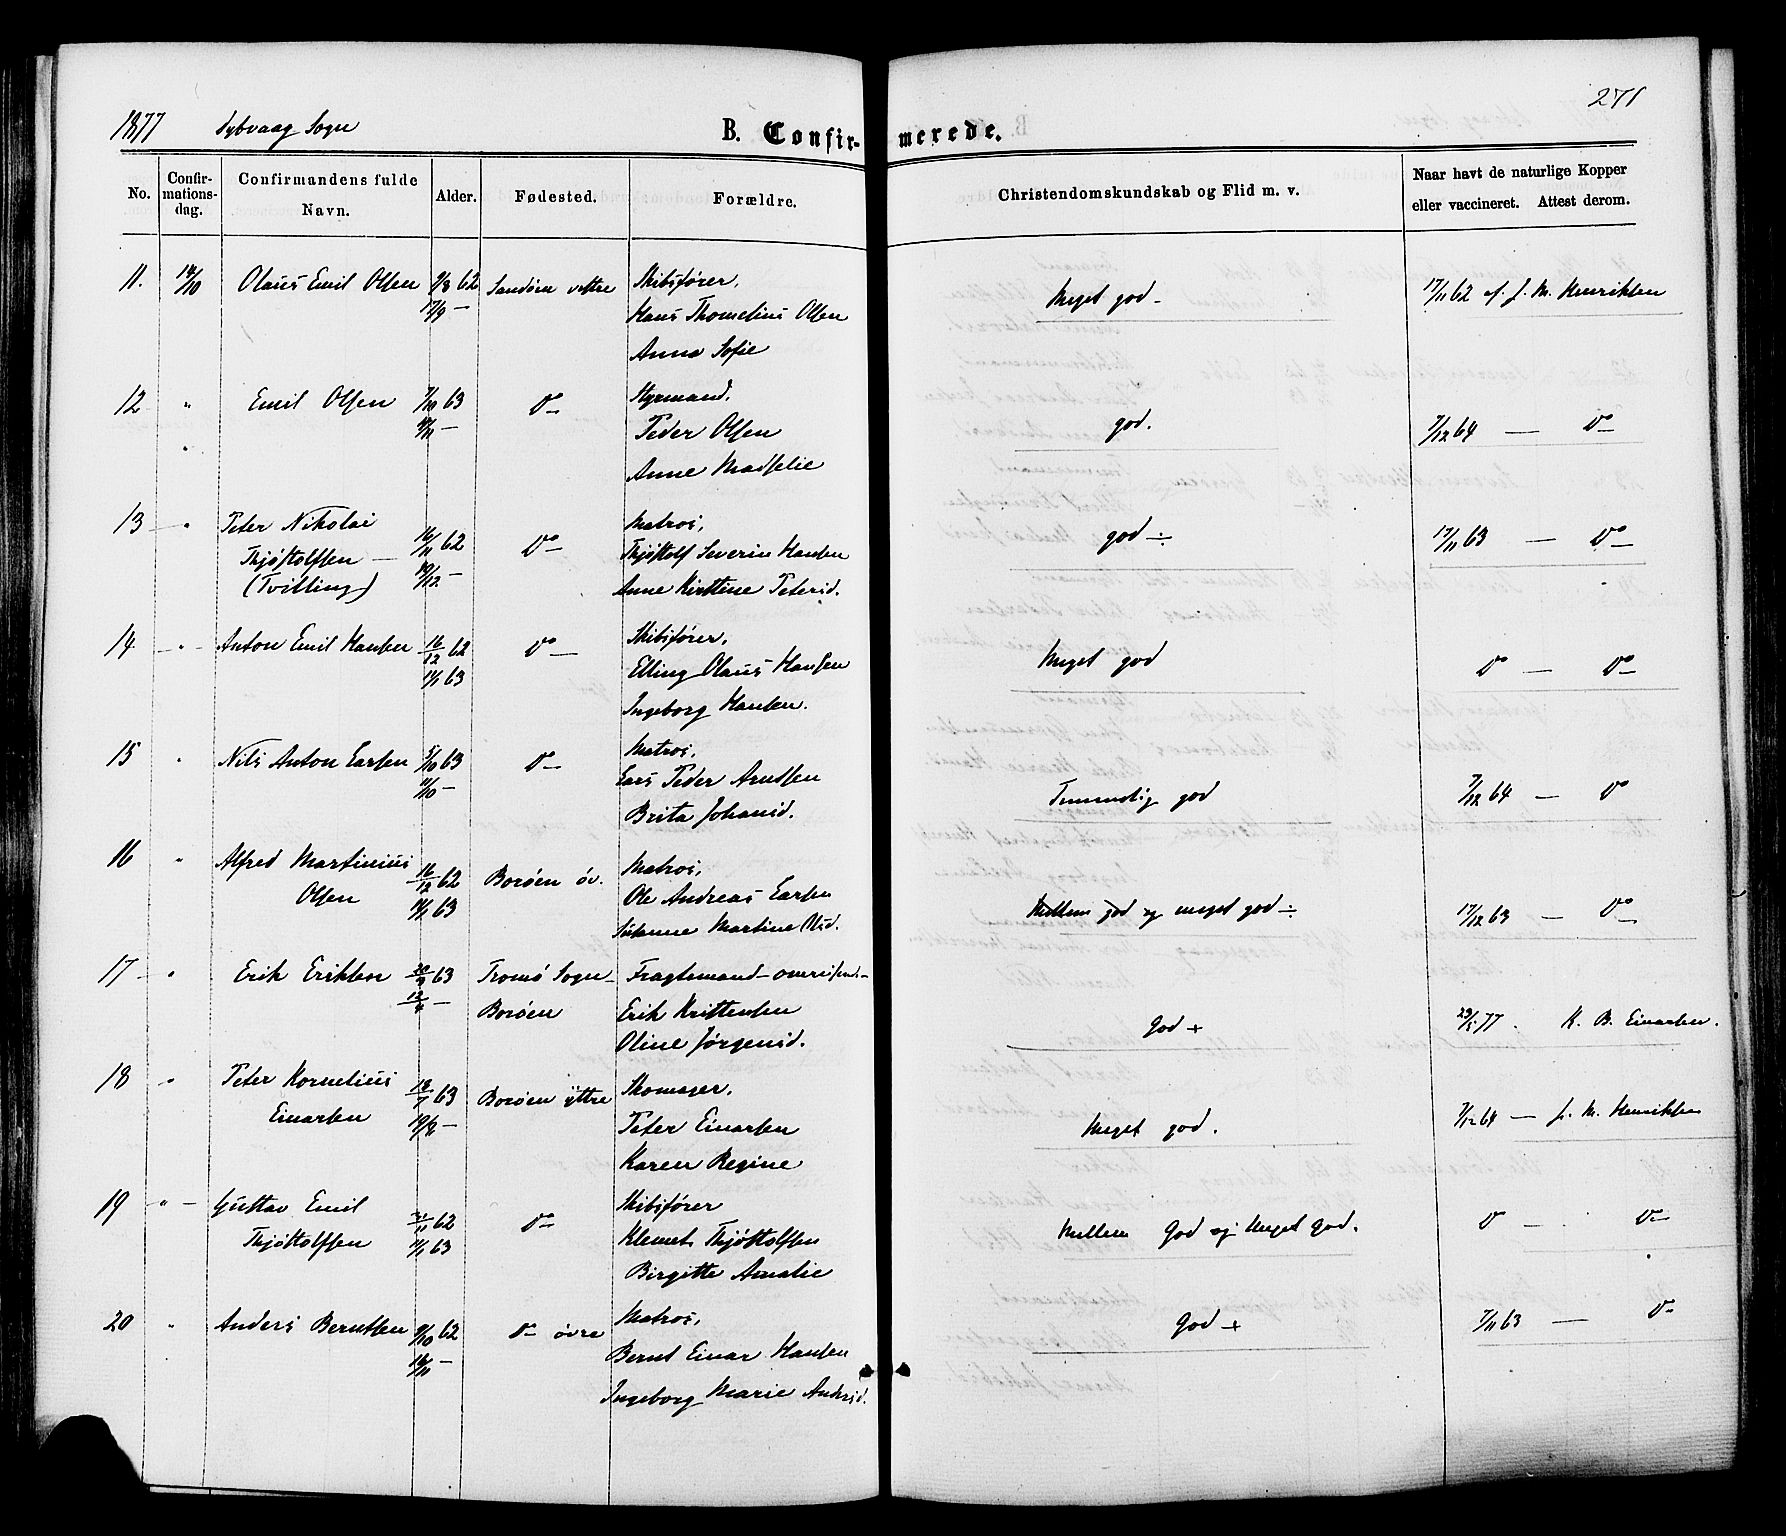 1877 Dybvaag Sogn B. Confir- merede. 271
No. Confir- mations- dag. Confirmandens fulde Navn. Alder. Fødested. Forældre. Christendomskundskab og Flid m. v. Naar havt de naturlige Kopper eller vaccineret. Attest derom.
11. 14/10 Olaus Emil Olsen 9/8 62 Sandøen vestre Skibsfører, Meget god - 17/11 62 af J. M. Henriksen
17/9 — Hans Thomelius Olsen
Anna Sofie
12 " Emil Olsen 7/10 63 Do Styrmand, god. 7/12 64 — Do
/11 — Peder Olsen
Anne Madselie
13 — " Peter Nikolai 16/11 62 Do Matros, god ÷ 17/11 63 — Do
Thjøstolfsen — 19/12 — Thjøstolf Severin Hansen
(Tvilling) Anne Kirstine Petersd.
14 - " - Anton Emil Hansen 16/12 62 Do Skibsfører, Meget god Do — Do
11/1 63 Elling Olaus Hansen
Ingeborg Hansen.
15 " Nils Anton Larsen 5/10 63 Do Matros, Temmelig god 7/12 64 — Do
11/10 — Lars Peder Arndsen
Brita Johansd.
16 " Alfred Martinius 16/12 62 Borøen øv. Matros, Mellem god og meget god ÷ 17/12 63 — Do
Olsen 63 Ole Andreas Larsen
Susanne Martine Olsd.
17 — " Erik Eriksen 63 Tromø Sogn Fragtemand - God + 23/5 77. K. B. Einarsen.
12/4 — Borøen Erik Kristensen
Oline Jørgensd.
18 " Peter Kornelius 18/7 63 Borøen ÿttre Skomager, Meget god. 7/12 64 — J. M. Henriksen
Einarsen — Peter Einarsen
Karen Regine
19 " — Gustav Emil 62 Do Skibsfører Mellem God og Meget god. Do — Do
Thjøstolfsen 11/1 63 Klemet Thjøstolfsen
Birgitte Amalie
20 " Anders Berntsen 9/10 62 Do øvre Matros, God + 7/11 63 — Do
16/11 — Bernt Einar Hansen
Ingeborg Marie Andersd.